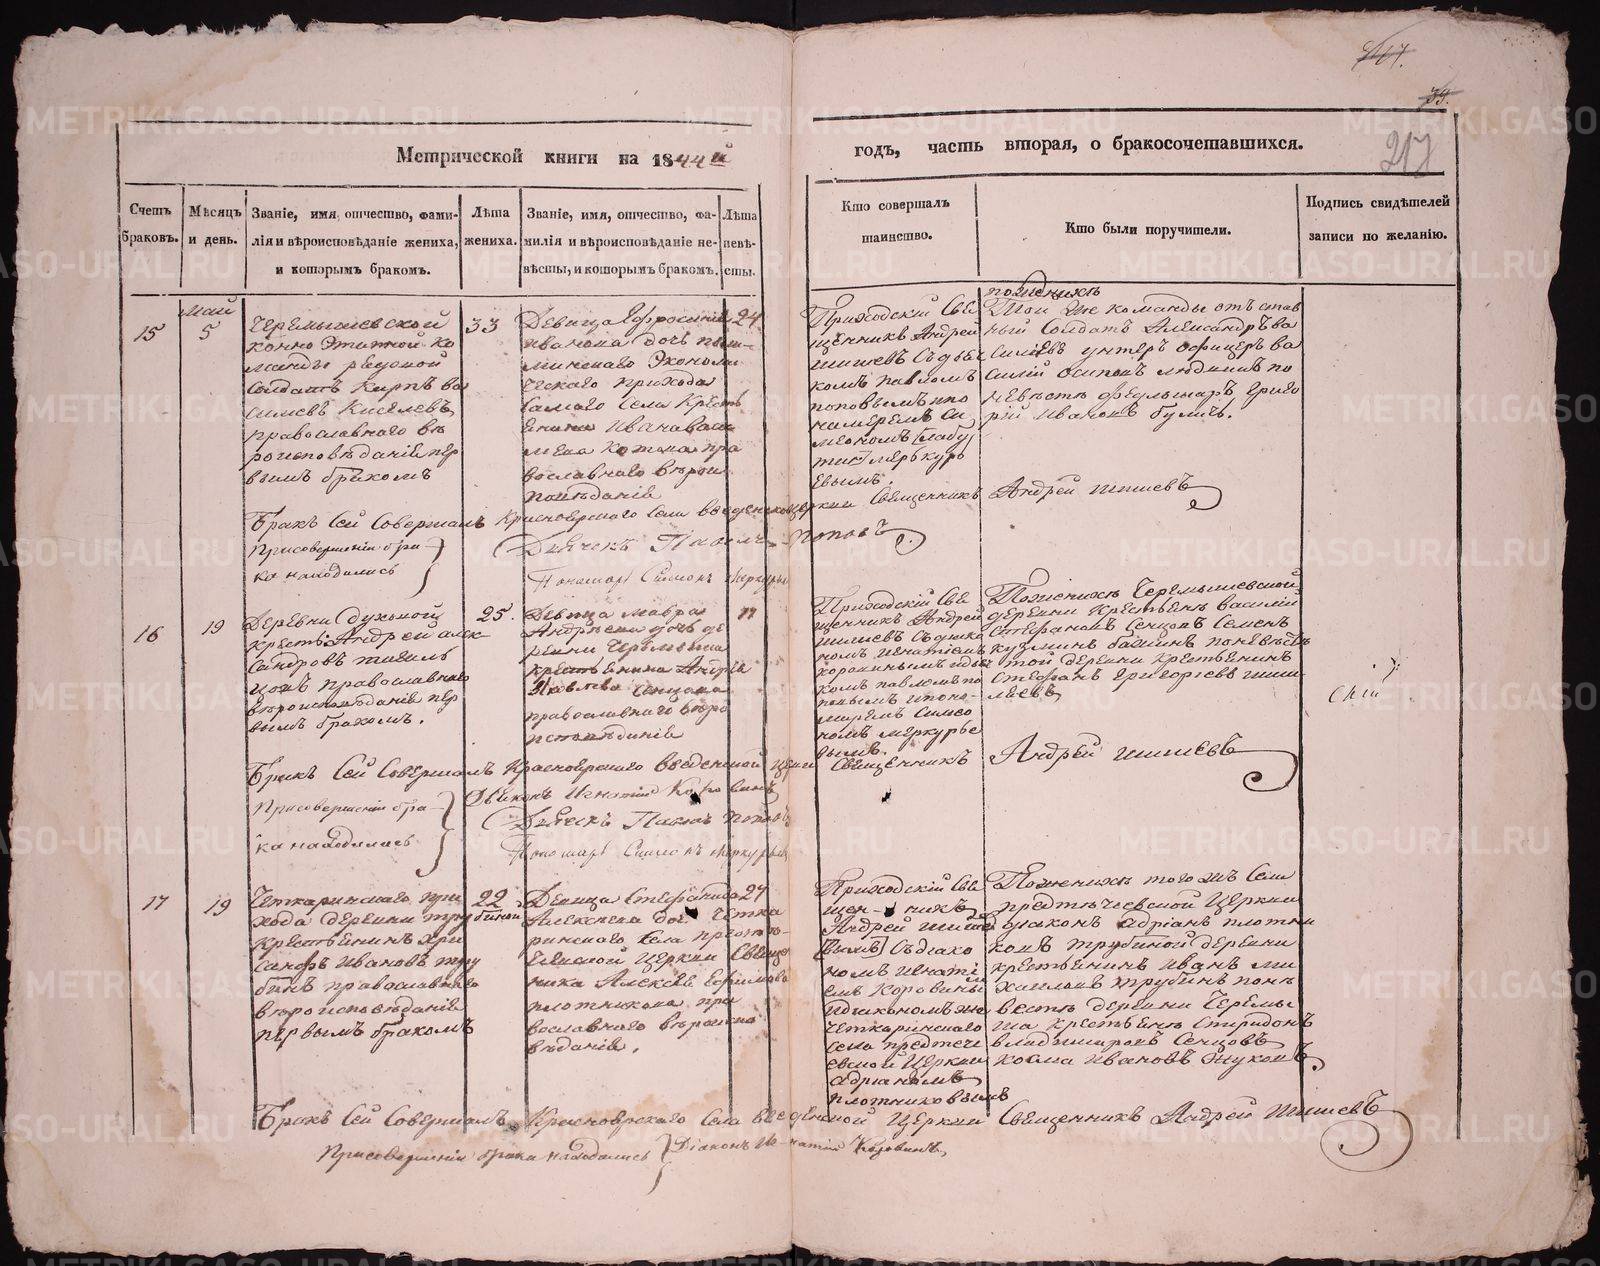 417.
39.
217
Метрической книги на 1844й
годъ, часть вторая, о бракосочетавшихся.
Счетъ браковъ.
Мѣсяцъ и день.
Званіе, имя, отчество, фами-
лія и вѣроисповѣданіе жениха,
и которымъ бракомъ.
Лѣта
жениха.
Званіе, имя, отчество, фа-
милія и вѣроисповѣданіе не-
вѣсты, и которымъ бракомъ.
Лѣта
невѣ-
сты.
Кто совершалъ
таинство.
Кто были поручители.
Подпись свидѣтелей
записи по желанію.
15
Май
5
Черемышевской
конно Этапной ко
манды рядовой
Солдатъ Карпъ Ва
сильевъ Киселевъ
православнаго вѣ
роисповѣданіе пер
вымъ бракомъ
33
Девица Ефросинія
Иванова дочь
ческаго прихода
самаго села Кресть
янина Ивана
православнаго вѣрои
повѣданіе
24
Приходскій Свя
щенникъ Андрей
Шишевъ Съ дья
комъ Павломъ
Поповымъ и по
намаремъ Си
меономъ
Меркурь
евымъ.
по женихѣ
Той же команды отъстав
ный Солдатъ Александръ Ва
сильевъ унтеръ офицеръ Ва
силій Осиповъ по
невѣстѣ Григо
рій Ивановъ
Бракъ Сей Совершалъ Красноярскаго Села Введенской церкви Священникъ Андрей Шишевъ
При совершеніи бра-
ка находились
Дьячекъ Павелъ Поповъ
Пономарь Симеонъ Меркурьев
16
19
Деревни Духовой
крестья: Андрей Алек
сандровъ
цовъ православнаго
вѣроисповѣданіе пер
вымъ бракомъ.
25.
Девица Мавра
Андрѣева дочь де
ревни Черемыша
крестьянина Андрѣя
Павлова Сенцова
православнаго вѣро
исповѣданіе
Приходскій Свя
щенникъ Андрей
Шишевъ Съ діако
номъ Игнатіемъ
Коровинымъ и дьяч
комъ Павломъ По
повымъ и поно-
маремъ Симео
номъ Меркурье
вымъ.
По женихѣ Черемышевской
деревни Крестьянъ Василій
Стефановъ Сенцовъ Семенъ
Кузминъ по невѣстѣ
той деревни Крестьянинъ
Стефанъ Григорьевъ
Бракъ Сей Совершалъ Красноярскаго Введенской церкви Священникъ Андрей Шишевъ
При совершеніи бра-
ка находились
Дьяконъ Игнатій Коровинъ
Дьячекъ Павелъ Поповъ
Пономарь Симеонъ Меркурьев
17
19
Четкаринскаго при
хода деревни Трубиной
крестьянинъ Хри
санфъ Ивановъ Тру
бинъ православнаго
вѣроисповѣданіе
первымъ бракомъ
22
Девица Стефанида
Алексѣева дочь Четка
ринскаго села Предте-
чевской Церкви Священ
ника Алексѣя Ефимова
Плотникова пра
вославнаго вѣроиспо
вѣданіе.
24
Приходскій Свя
щенникъ
Андрей Шише
вымъ Съ діако
номъ Игнаті
емъ Коровины
и дьякономъ
Четкаринскаго
села Предтеч
евской Церкви
Адріаномъ
Плотниковымъ
По женихѣ того жъ Села
Предтѣчевской Церкви
дьяконъ Адріанъ Плотни
ковъ Трубиной деревни
крестьянинъ Иванъ Ми
хайловъ Трубинъ по не
вестѣ деревни Черемы
ша крестьяне Спиридонъ
Владимировъ Сенцовъ
Косма Ивановъ Жуковъ.
Бракъ Сей Совершалъ Красноярскаго Села Введенской Церкви Священникъ Андрей Шишевъ
При совершеніи брака находились Діаконъ Игнатій Коровинъ
METRIKI.GASO-URAL.RU